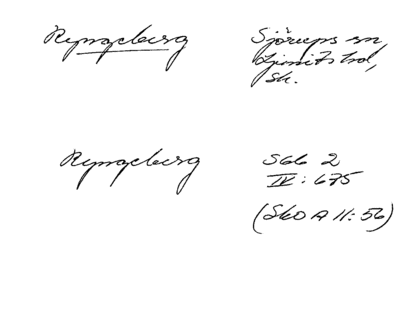 Ryngeberg
Sjörups sn,
Ljunits hd,
Sk.
Ryngeberg
SGb 2
IV: 675
(SkO A 11: 56)